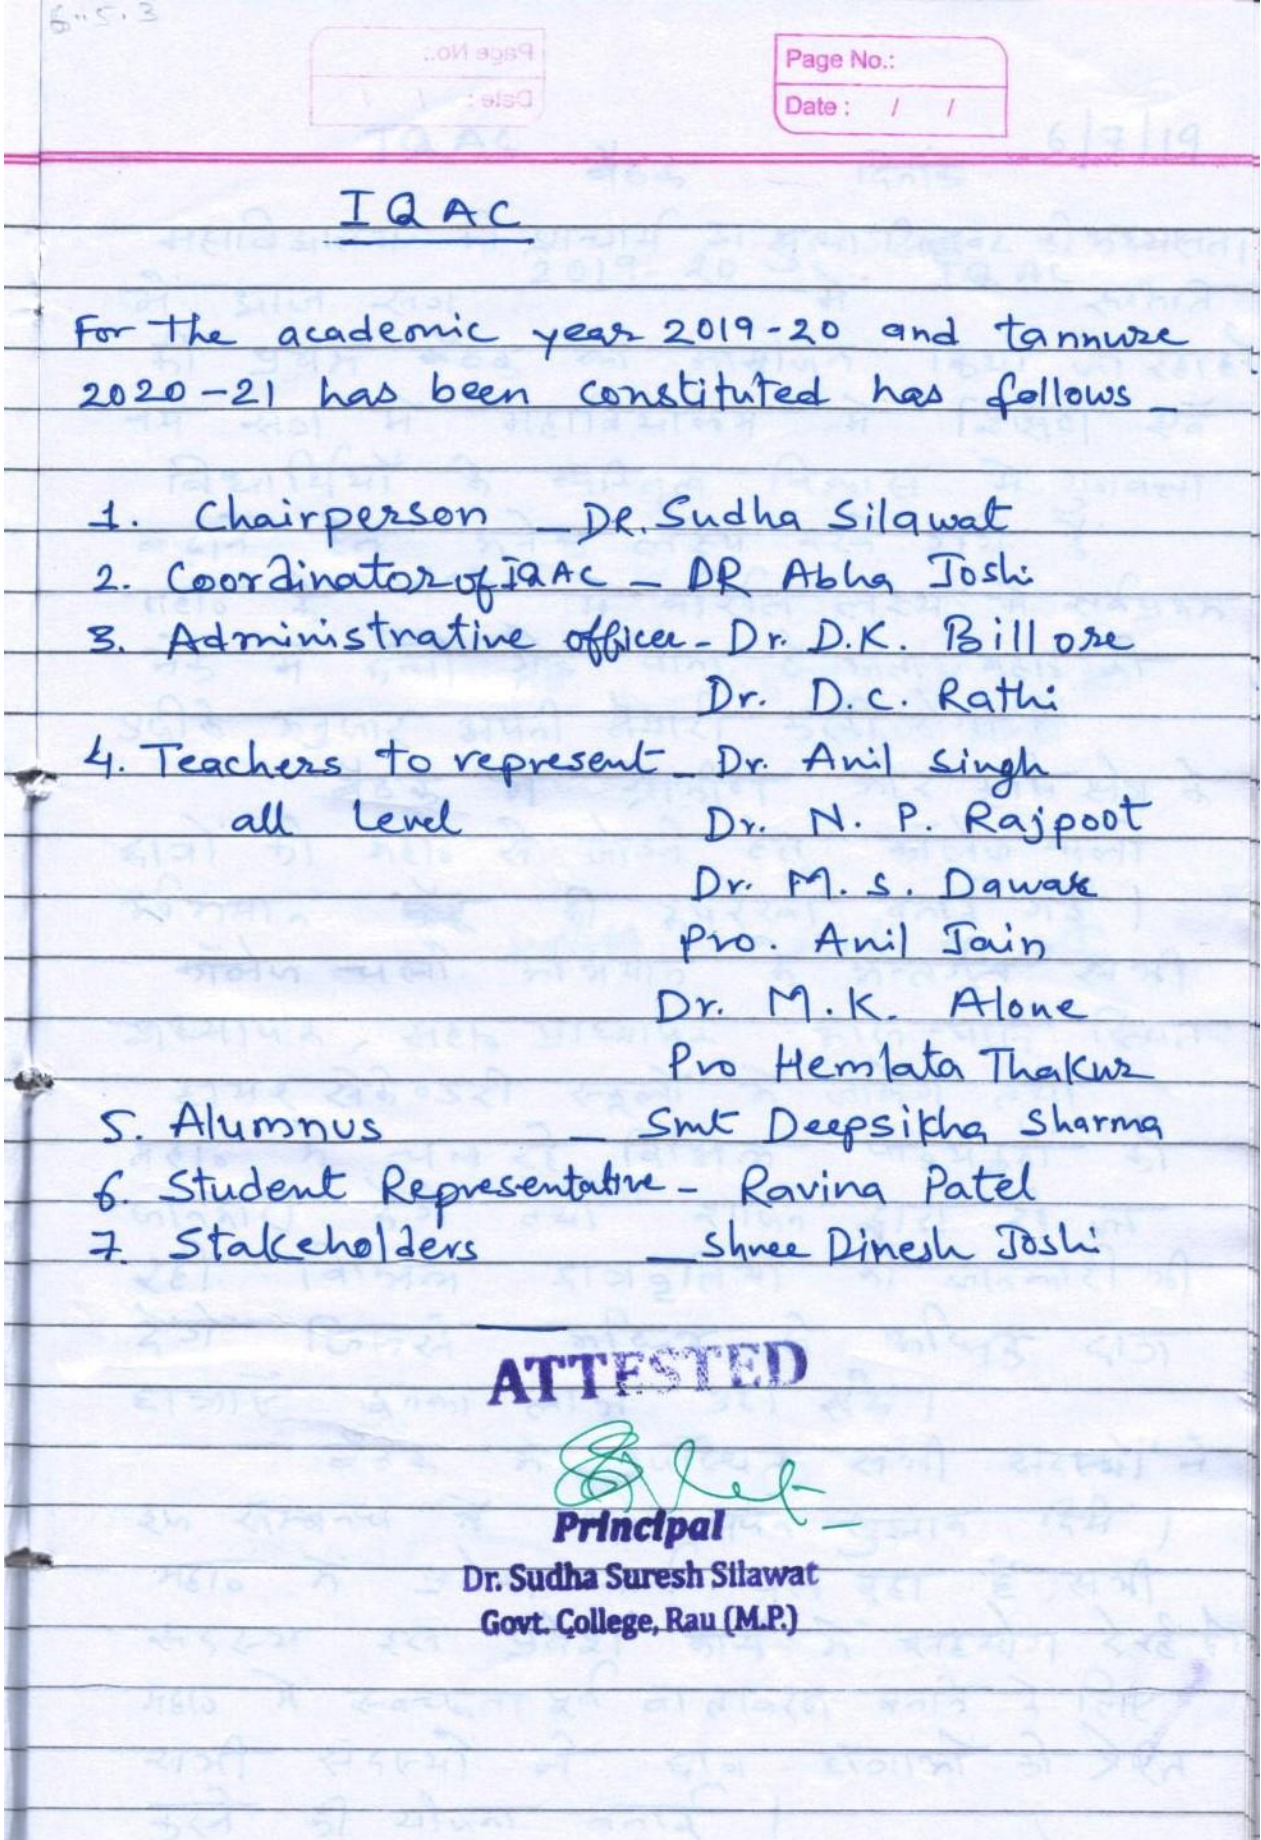 6.5.3
Page No.:
Date : / /
IQAC
For the academic year 2019-20 and tannure
2020-21 has been constituted has follows -
1. Chairperson - DR. Sudha Silawat
2. Coordinator of IQAC - DR Abha Joshi
3. Administrative officer - Dr. D.K. Billore
Dr. D.C. Rathi
4. Teachers to represent - Dr. Anil Singh
all level Dr. N. P. Rajpoot
Dr. M. S. Dawar
Pro. Anil Jain
Dr. M.K. Alone
Pro Hemlata Thakur
5. Alumnus - Smt Deepsikha Sharma
6. Student Representative - Ravina Patel
7. Stakeholders - Shree Dinesh Joshi
ATTESTED
Principal
Dr. Sudha Suresh Silawat
Govt. College, Rau (M.P.)